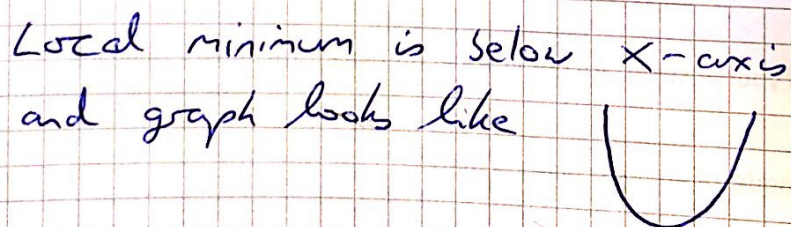 Local minimum is below x-axis
and graph looks like